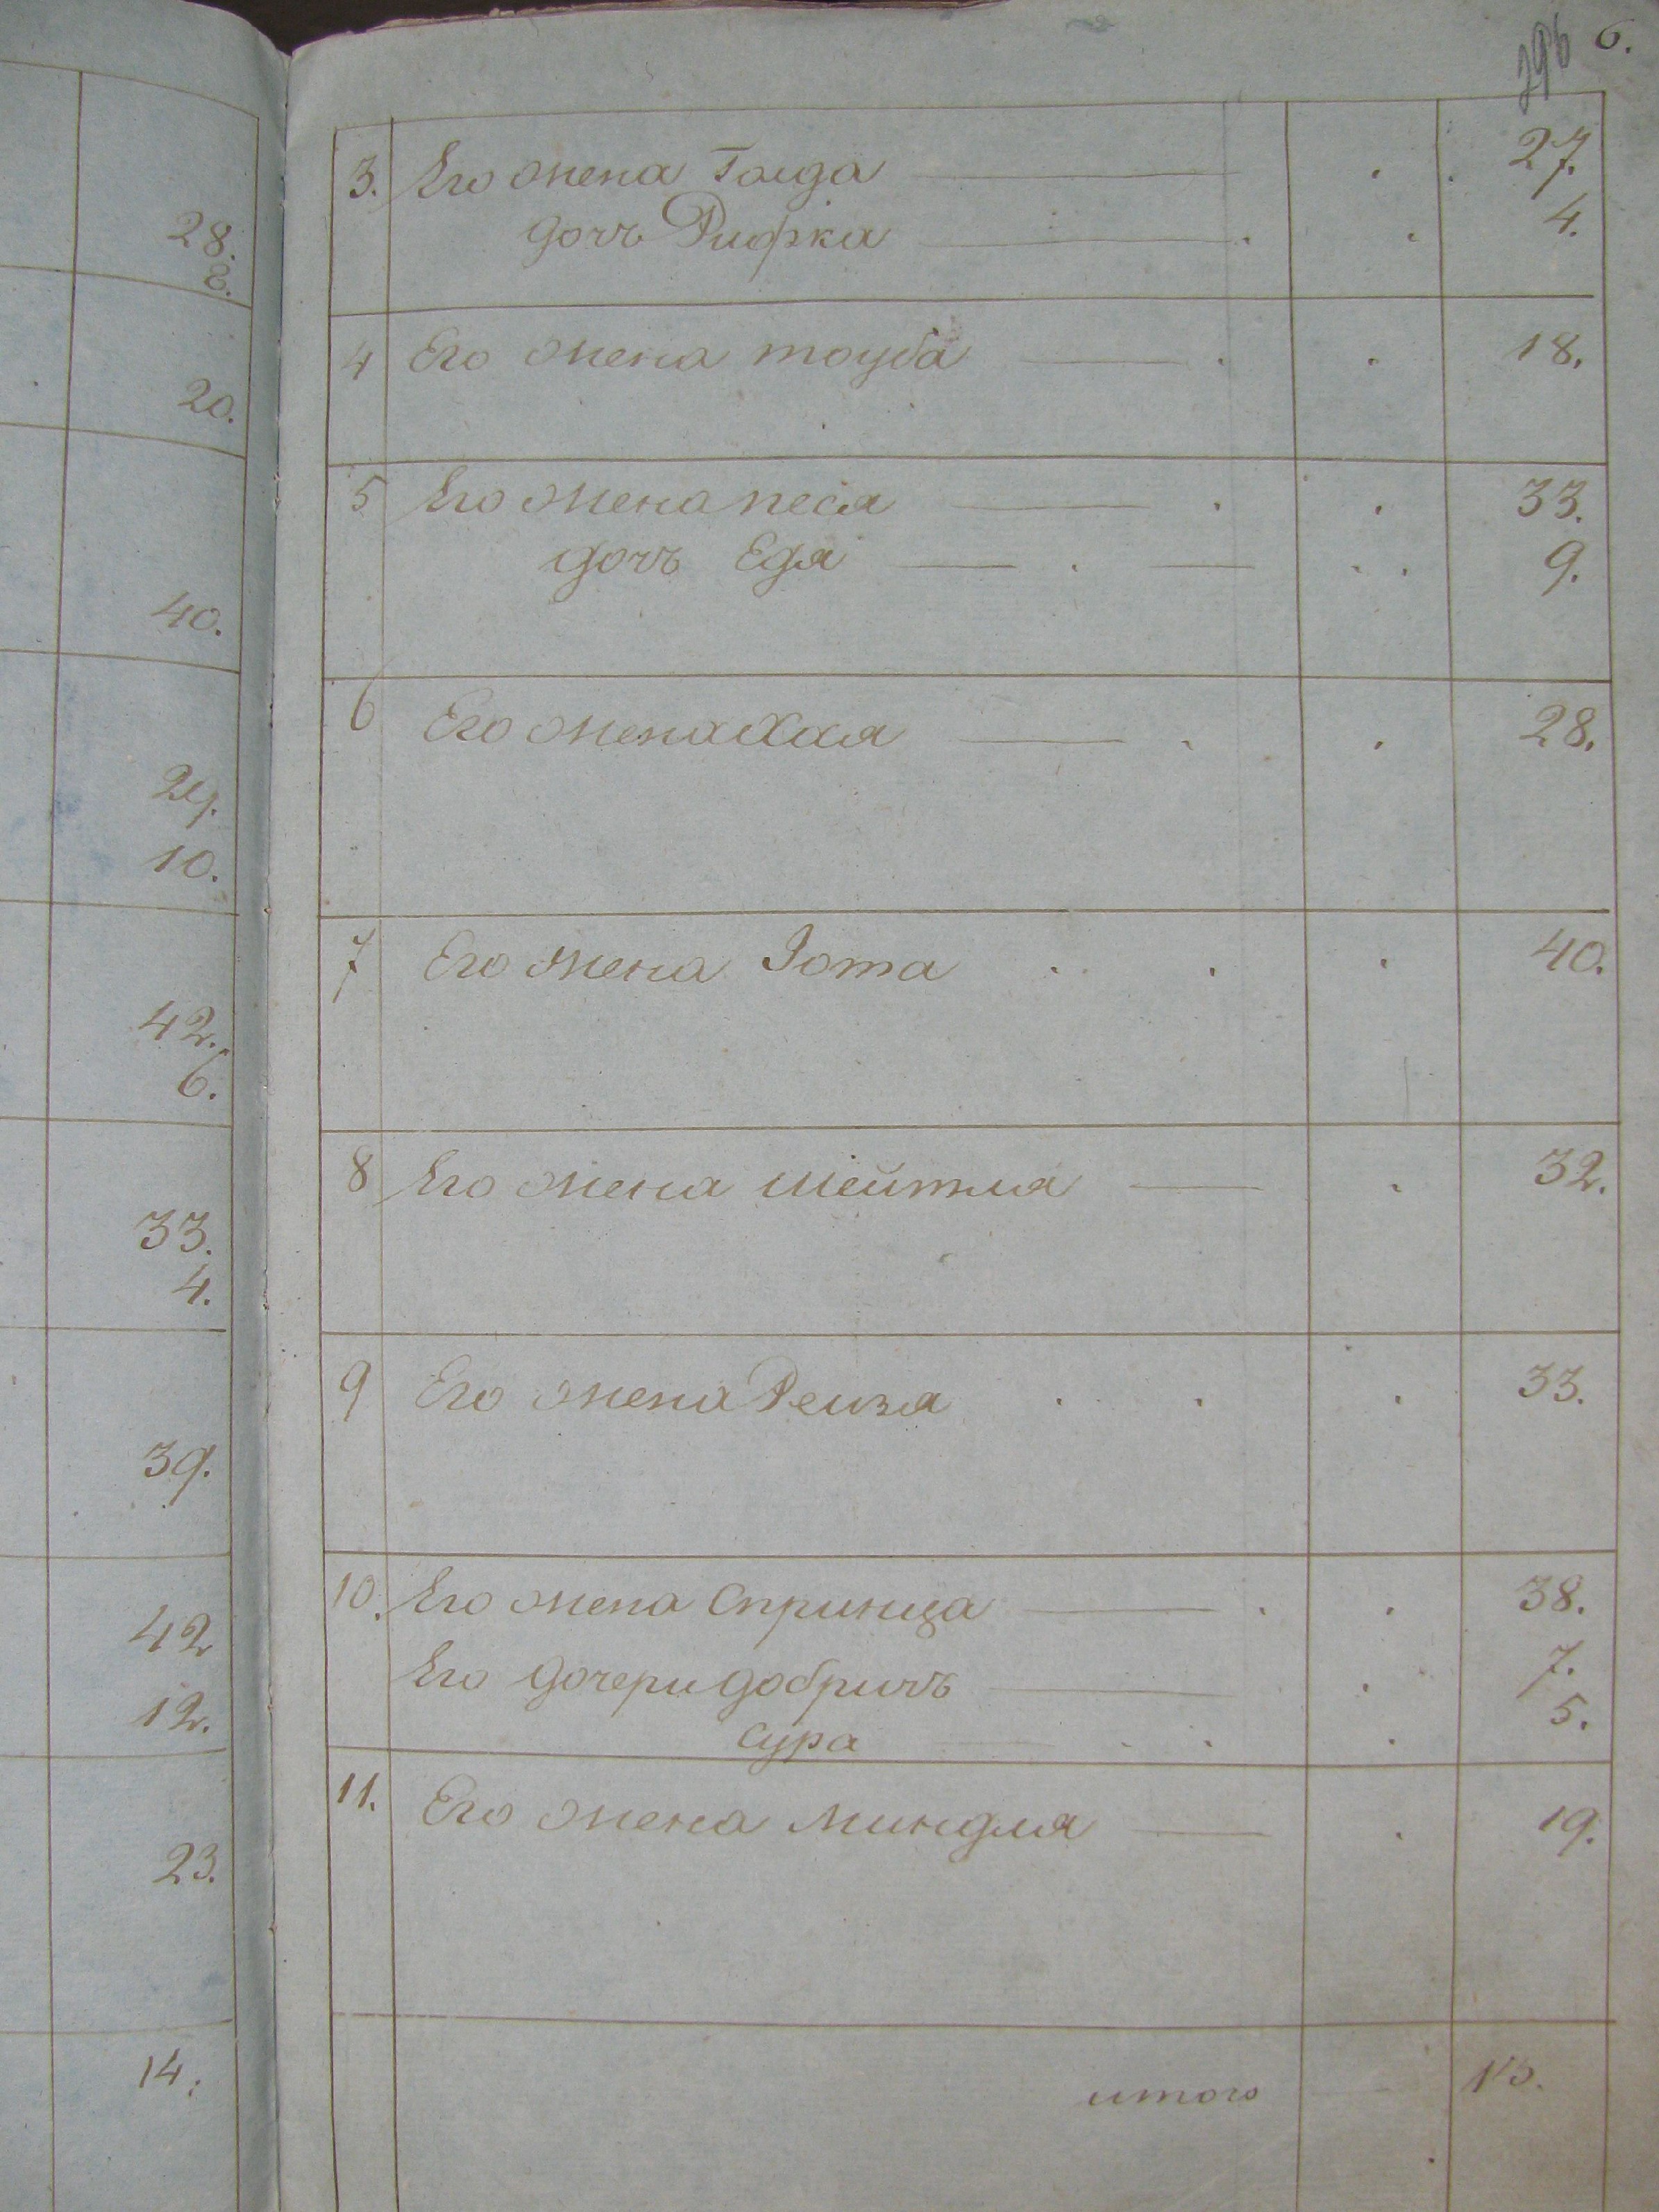 28.
8.
20.
40.
24.
10.
42.
6.
33.
4.
39.
42
12.
23.
14.
396 6.
3. Его жена Гагда 27.
дочь Рифка 4.
4 Его жена тоуба 18.
5 Его жена песя 33.
дочь Едя 9.
6 Его жена Хая 28.
7 Его жена Рота 40.
8 Его жена шейтля 32.
9 Его жена Реизя 33.
10. Его жена Спринца 38.
Его дочери добричь 7.
Сура 5.
11. Его жена миндля 19.
итого 13.